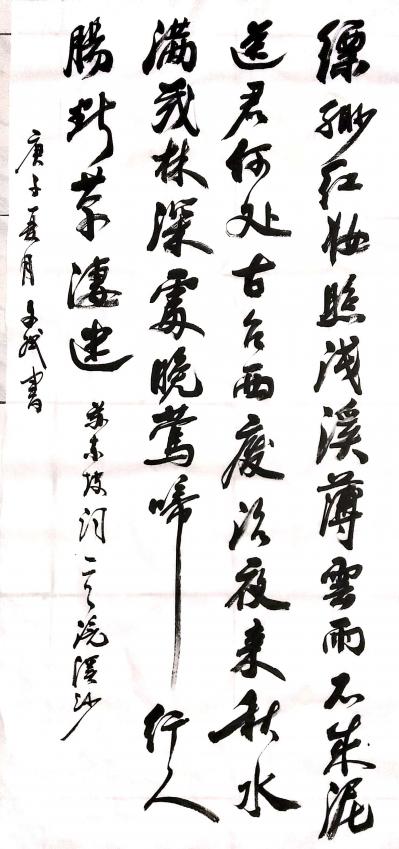 缥缈红妝照浅溪薄雲雨不成泥
送君何处古台西废沼夜来秋水
满茂林深處晚莺啼行人
腸断草淒迷 苏东坡词 浣溪沙
庚子夏月 書